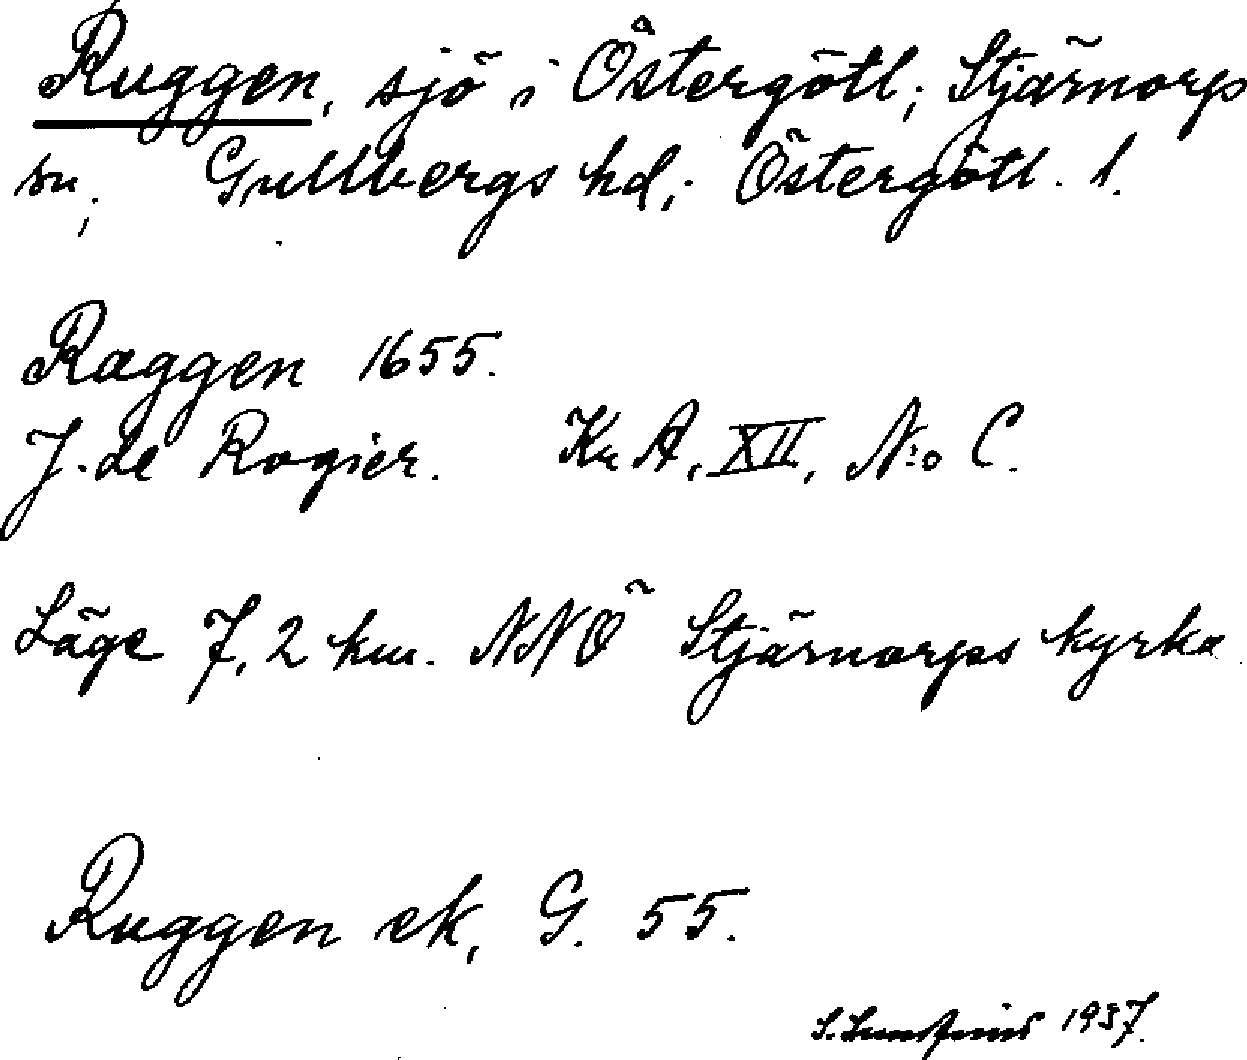 Ruggen, sjö i Östergötl; Stjärnorps
sn; Gullbergs hd; Östergötl. l.
Raggen 1655.
J. de Rogier. Kr A, XII, N:o C.
Läge 7,2 km. NNÖ Stjärnorps kyrka
Ruggen ek, G. 55.
S. 1937.